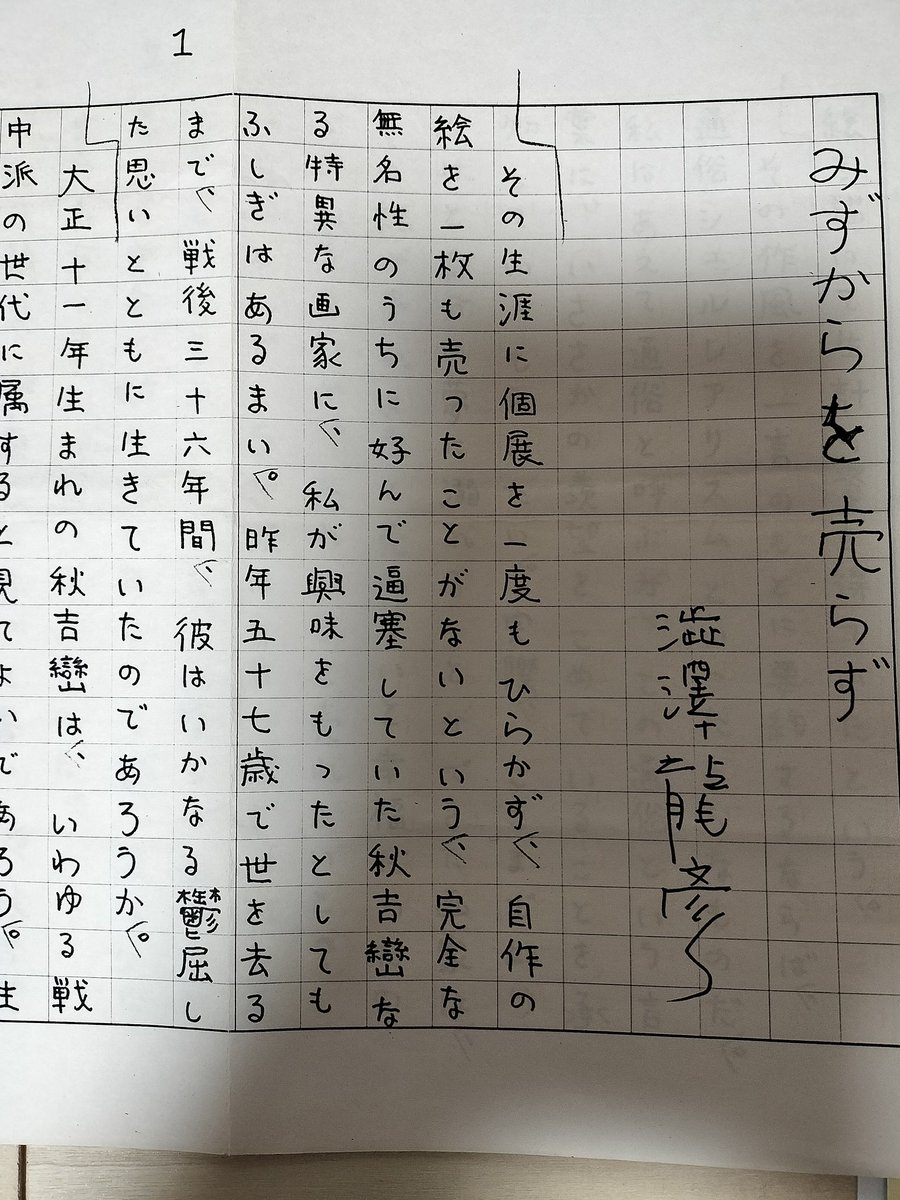 1
みずからを売らず
澁澤龍彥
その生涯に個展を一度もひらかず、自作の
絵を一枚も売ったことがないという、完全な
無名性のうちに好んで逼塞していた秋吉巒な
る特異な画家に、私が興味をもったとしても
ふしぎはあるまい。昨年五十七歳で世を去る
まで、戦後三十六年間、彼はいかなる鬱屈し
た思いとともに生きていたのであろうか。
大正十一年生まれの秋吉巒は、いわゆる戦
中派の世代に属すると見てよいであろう。生